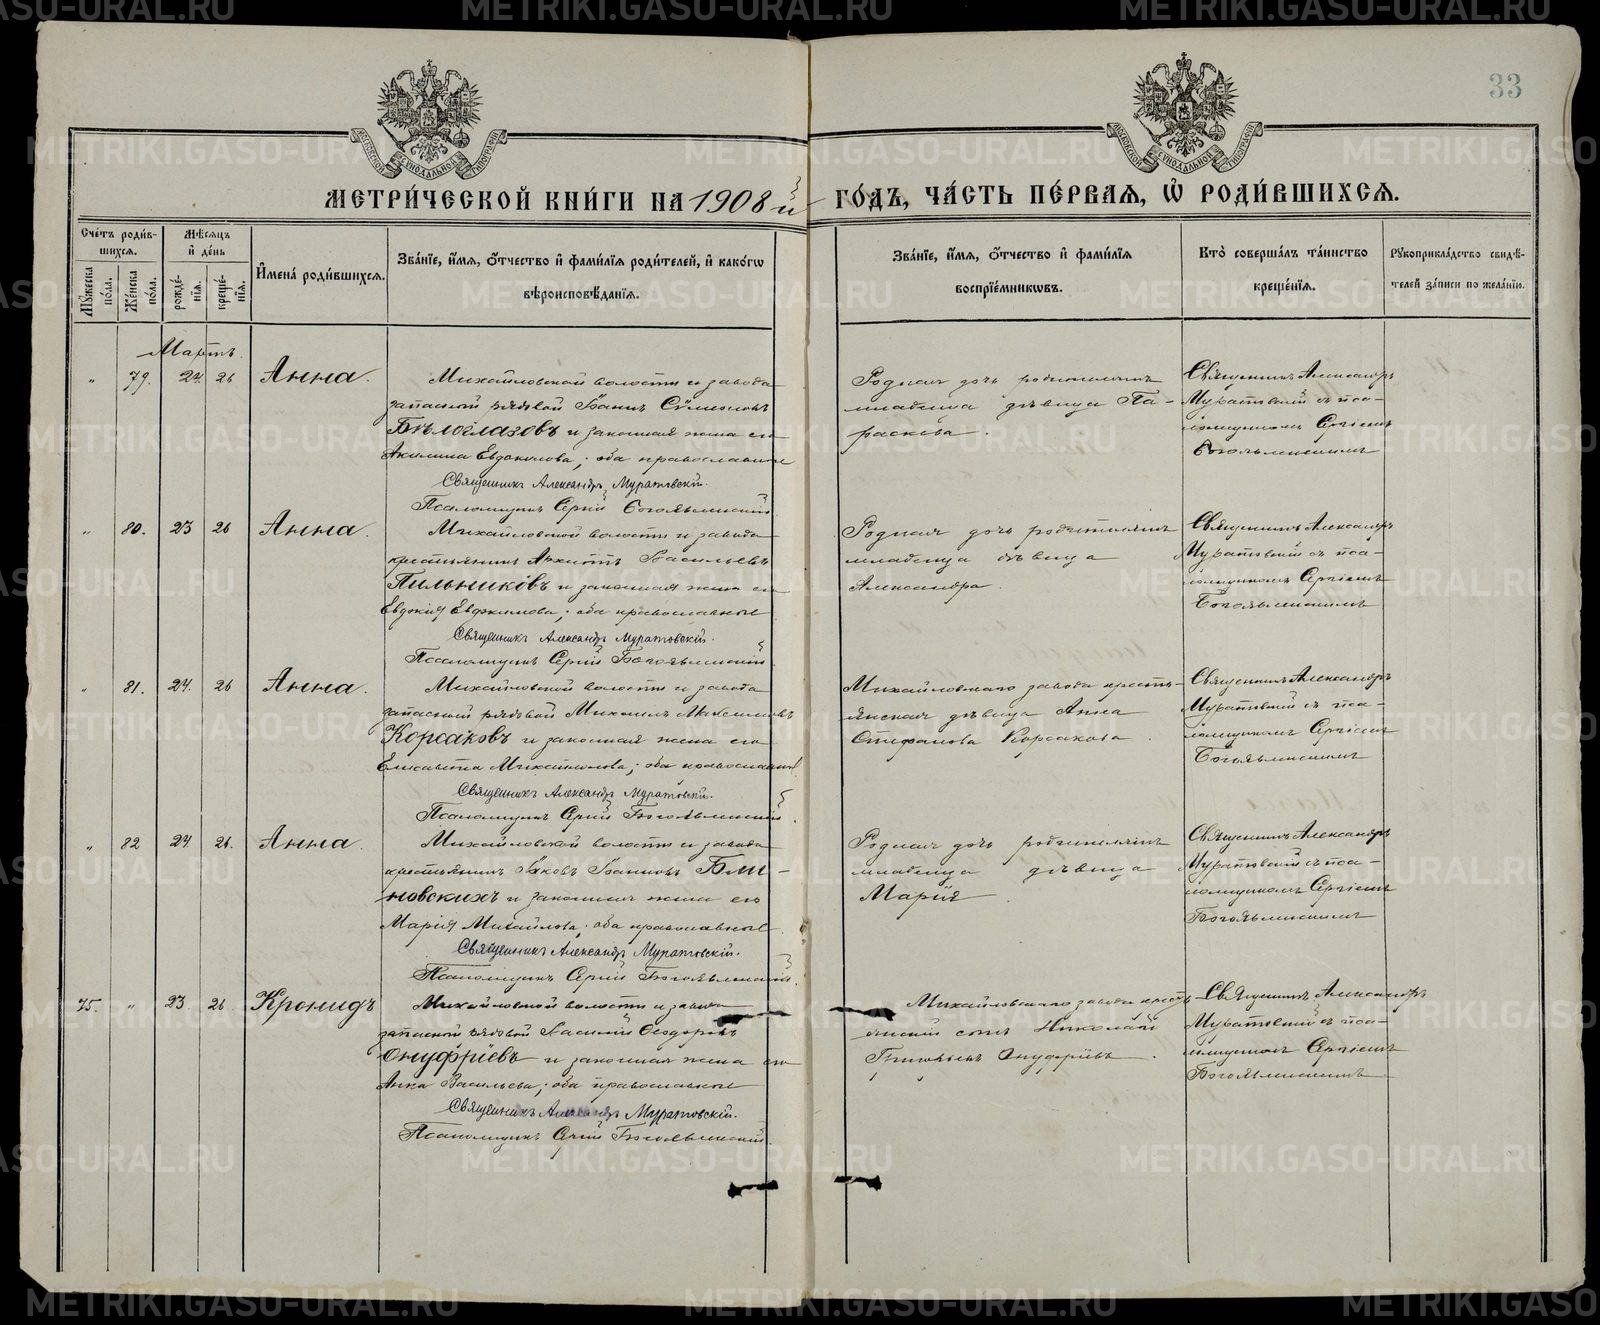 33
МЕТРИ́ЧЕСКОЙ КНИ́ГИ НА 1908 й ГО́ДЪ, ЧА́СТЬ ПЕ́РВАЯ, Ѡ РОДИ́ВШИХСЯ.
Сче́тъ роди́вшихся.
Му́жеска по́ла.
Же́нска по́ла.
Мѣ́сяцъ и де́нь
рожде́нїя.
креще́нїя.
И҆мена̀ роди́вшихся.
Зва́нїе, и҆́мя, ѻ҆́тчество и҆ фами́лїя роди́телей, и҆ како́гѡ
вѣроисповѣ́данїя.
Зва́нїе, и҆́мя, ѻ҆́тчество и҆ фами́лїя
воспрїе́мниковъ.
Кто̀ соверша́лъ та́инство
креще́нїя.
Рꙋкоприкла́дство свидѣ́телей за́писи по жела́нїю.
Мартъ.
" 79. 24. 26 Анна.
Михайловской волости и завода
запасной рядовой Іоаннъ Сѵмеоновъ
Бѣлоглазовъ и законная жена его
Акилина Евдокимова; оба православные
Священникъ Александръ Муратовскій.
Псаломщикъ Сергій Богоявленскій
Родная дочь родителямъ
младенца дѣвица Па-
раскева.
Священникъ Александръ
Муратовскій съ пса-
ломщикомъ Сергіемъ
Богоявленскимъ
" 80. 23 26 Анна.
Михайловской волости и завода
крестьянинъ Васильевъ
Пильниковъ и законная жена его
Евдокія Евфимова; оба православные
Священникъ Александръ Муратовскій.
Псаломщикъ Сергій Богоявленскій
Родная дочь родителямъ
младенца дѣвица
Александра
Священникъ Александръ
Муратовскій съ пса-
ломщикомъ Сергіемъ
Богоявленскимъ
" 81. 24. 26 Анна.
Михайловской волости и завода
запасной рядовой Михаилъ Максимовъ
Корсаковъ и законная жена его
Елисавета Михайлова; оба православные
Священникъ Александръ Муратовскій.
Псаломщикъ Сергій Богоявленскій
Михайловскаго завода кресть-
янская дѣвица Анна
Стефанова Корсакова
Священникъ Александръ
Муратовскій съ пса-
ломщикомъ Сергіемъ
Богоявленскимъ
" 82 24 26. Анна.
Михайловской волости и завода
крестьянинъ Іаковъ Іоанновъ Бли-
новскихъ и законная жена его
Марія Михайлова; оба православные
Священникъ Александръ Муратовскій.
Псаломщикъ Сергій Богоявленскій
Родная дочь родителямъ
младенца дѣвица
Марія
Священникъ Александръ
Муратовскій съ пса-
ломщикомъ Сергіемъ
Богоявленскимъ
75. " 23 26. Кронидъ
Михайловской волости и завода
запасной рядовой Василій Ѳеодоровъ
Онуфріевъ и законная жена его
Анна Васильева; оба православные
Священникъ Александръ Муратовскій.
Псаломщикъ Сергій Богоявленскій
Михайловскаго завода кресть-
янскій сынъ Николай
Григорьевъ Онуфріевъ
Священникъ Александръ
Муратовскій съ пса-
ломщикомъ Сергіемъ
Богоявленскимъ
METRIKI.GASO-URAL.RU